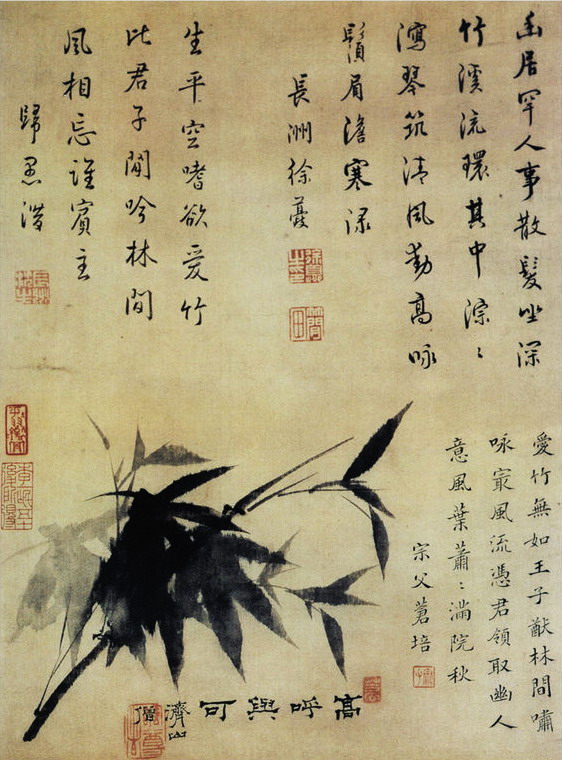 幽居罕人事散髮坐深
竹溪流環其中淙〻
瀉琴筑清風動高咏
鬚眉澹寒渌
長洲徐夔
生平空嗜欲愛竹
此君子閒吟林間
風相忘誰賓主
歸愚潛
愛竹無如王子猷林間嘯
咏冣風流憑君領取幽人
意風葉蕭〻滿院秋
宗父蒼培
高呼與可
濟山
僧